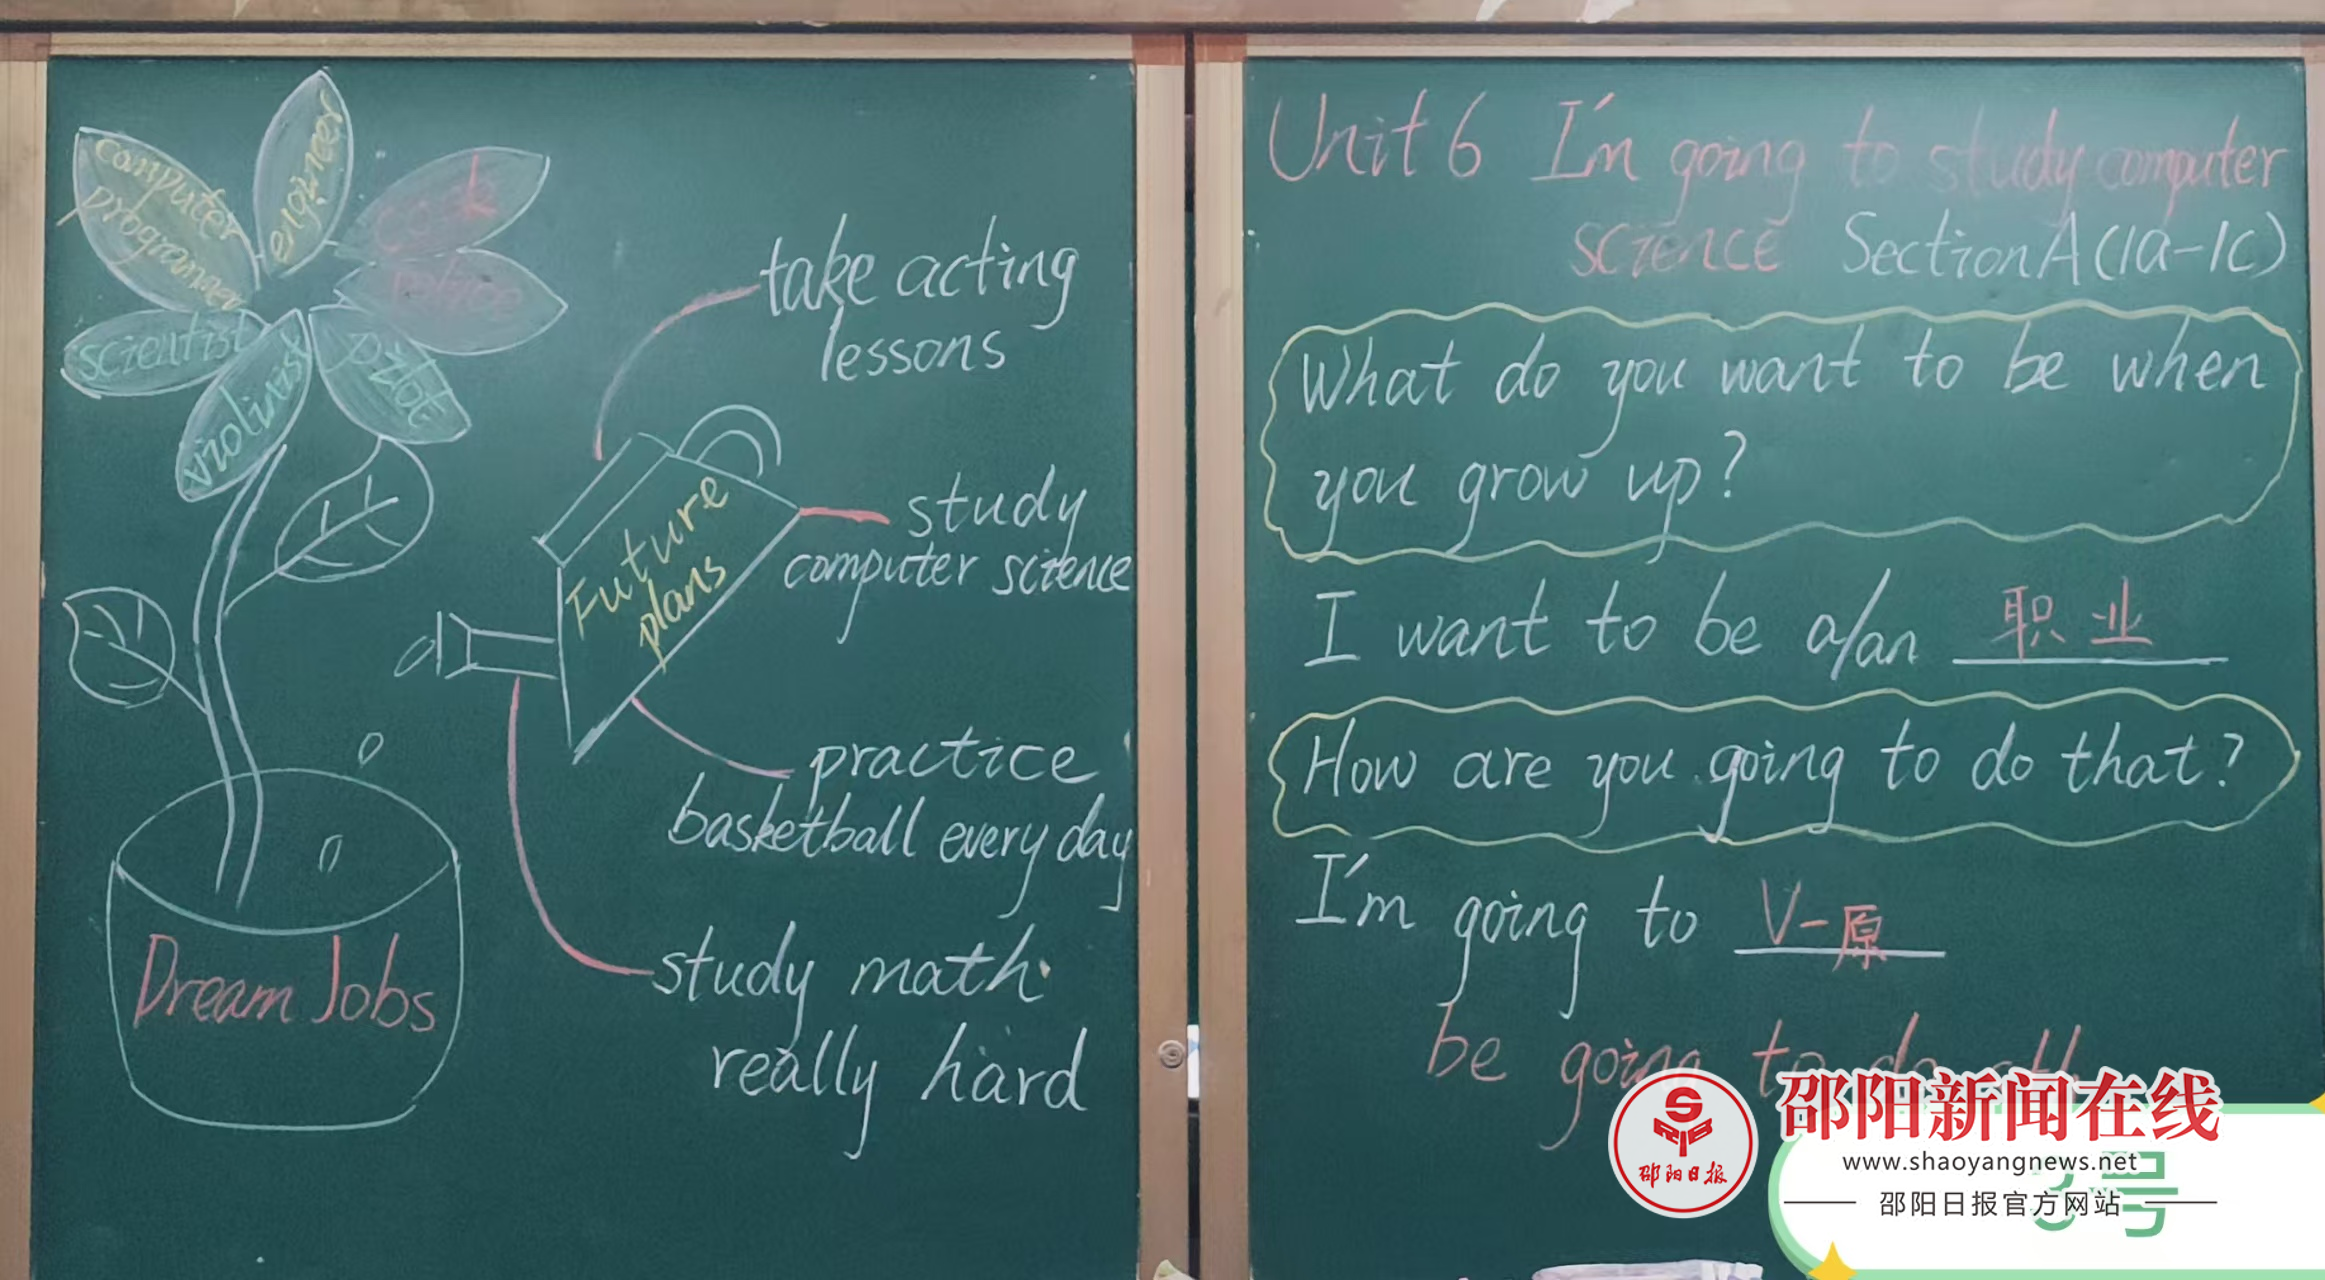 computer
programmer
engineer
cook
police
scientist
violinist
pilot
Dream Jobs
take acting
lessons
Future
plans
study
computer science
practice
basketball every day
study math
really hard
Unit 6 I'm going to study computer
science Section A (1a-1c)
What do you want to be when
you grow up?
I want to be a/an 职业
How are you going to do that?
I'm going to V-原
be going to do sth
S
RB
邵阳日报
邵阳新闻在线
www.shaoyangnews.net
邵阳日报官方网站
号